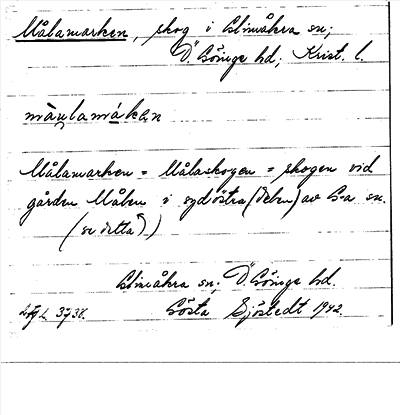 Målamarken, skog i Glimåkra sn;
Ö. Göinge hd; Krist. l.
Målamarken = Målaskogen = skogen vid
gården Målen i sydöstra (delen) av G-a sn.
(se detta))
Glimåkra sn; Ö. Göinge hd.
Gösta Sjöstedt 1942.